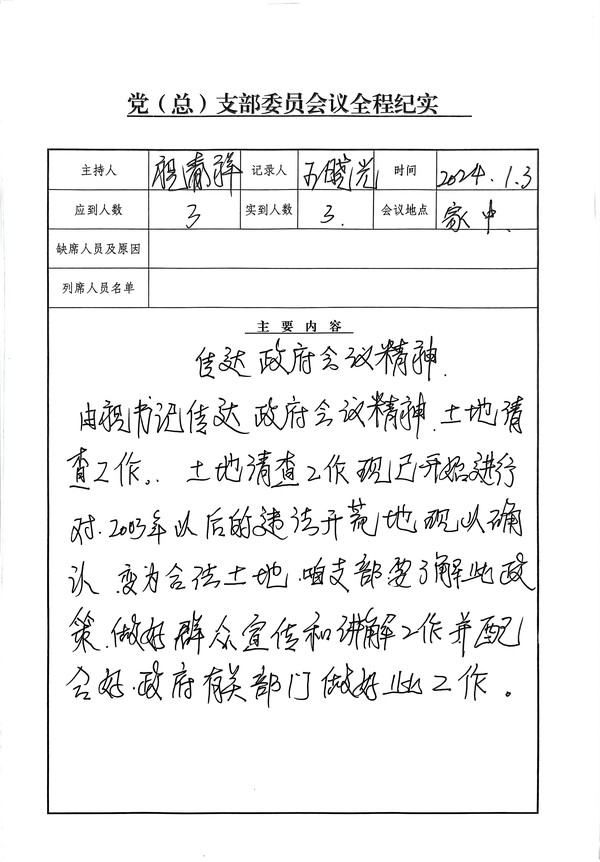 党（总）支部委员会议全程纪实
主持人 祝清祥 记录人 王晓光 时间 2024.1.3
应到人数 3 实到人数 3. 会议地点 家中.
缺席人员及原因
列席人员名单
主要内容
传达政府会议精神.
由祝书记传达政府会议精神.土地清
查工作。. 土地清查工作现已开始进行
对.2003年以后的违法开荒地现以确
认.变为合法土地.咱支部要了解此政
策.做好群众宣传和讲解工作并配
合好.政府有关部门做好此工作。